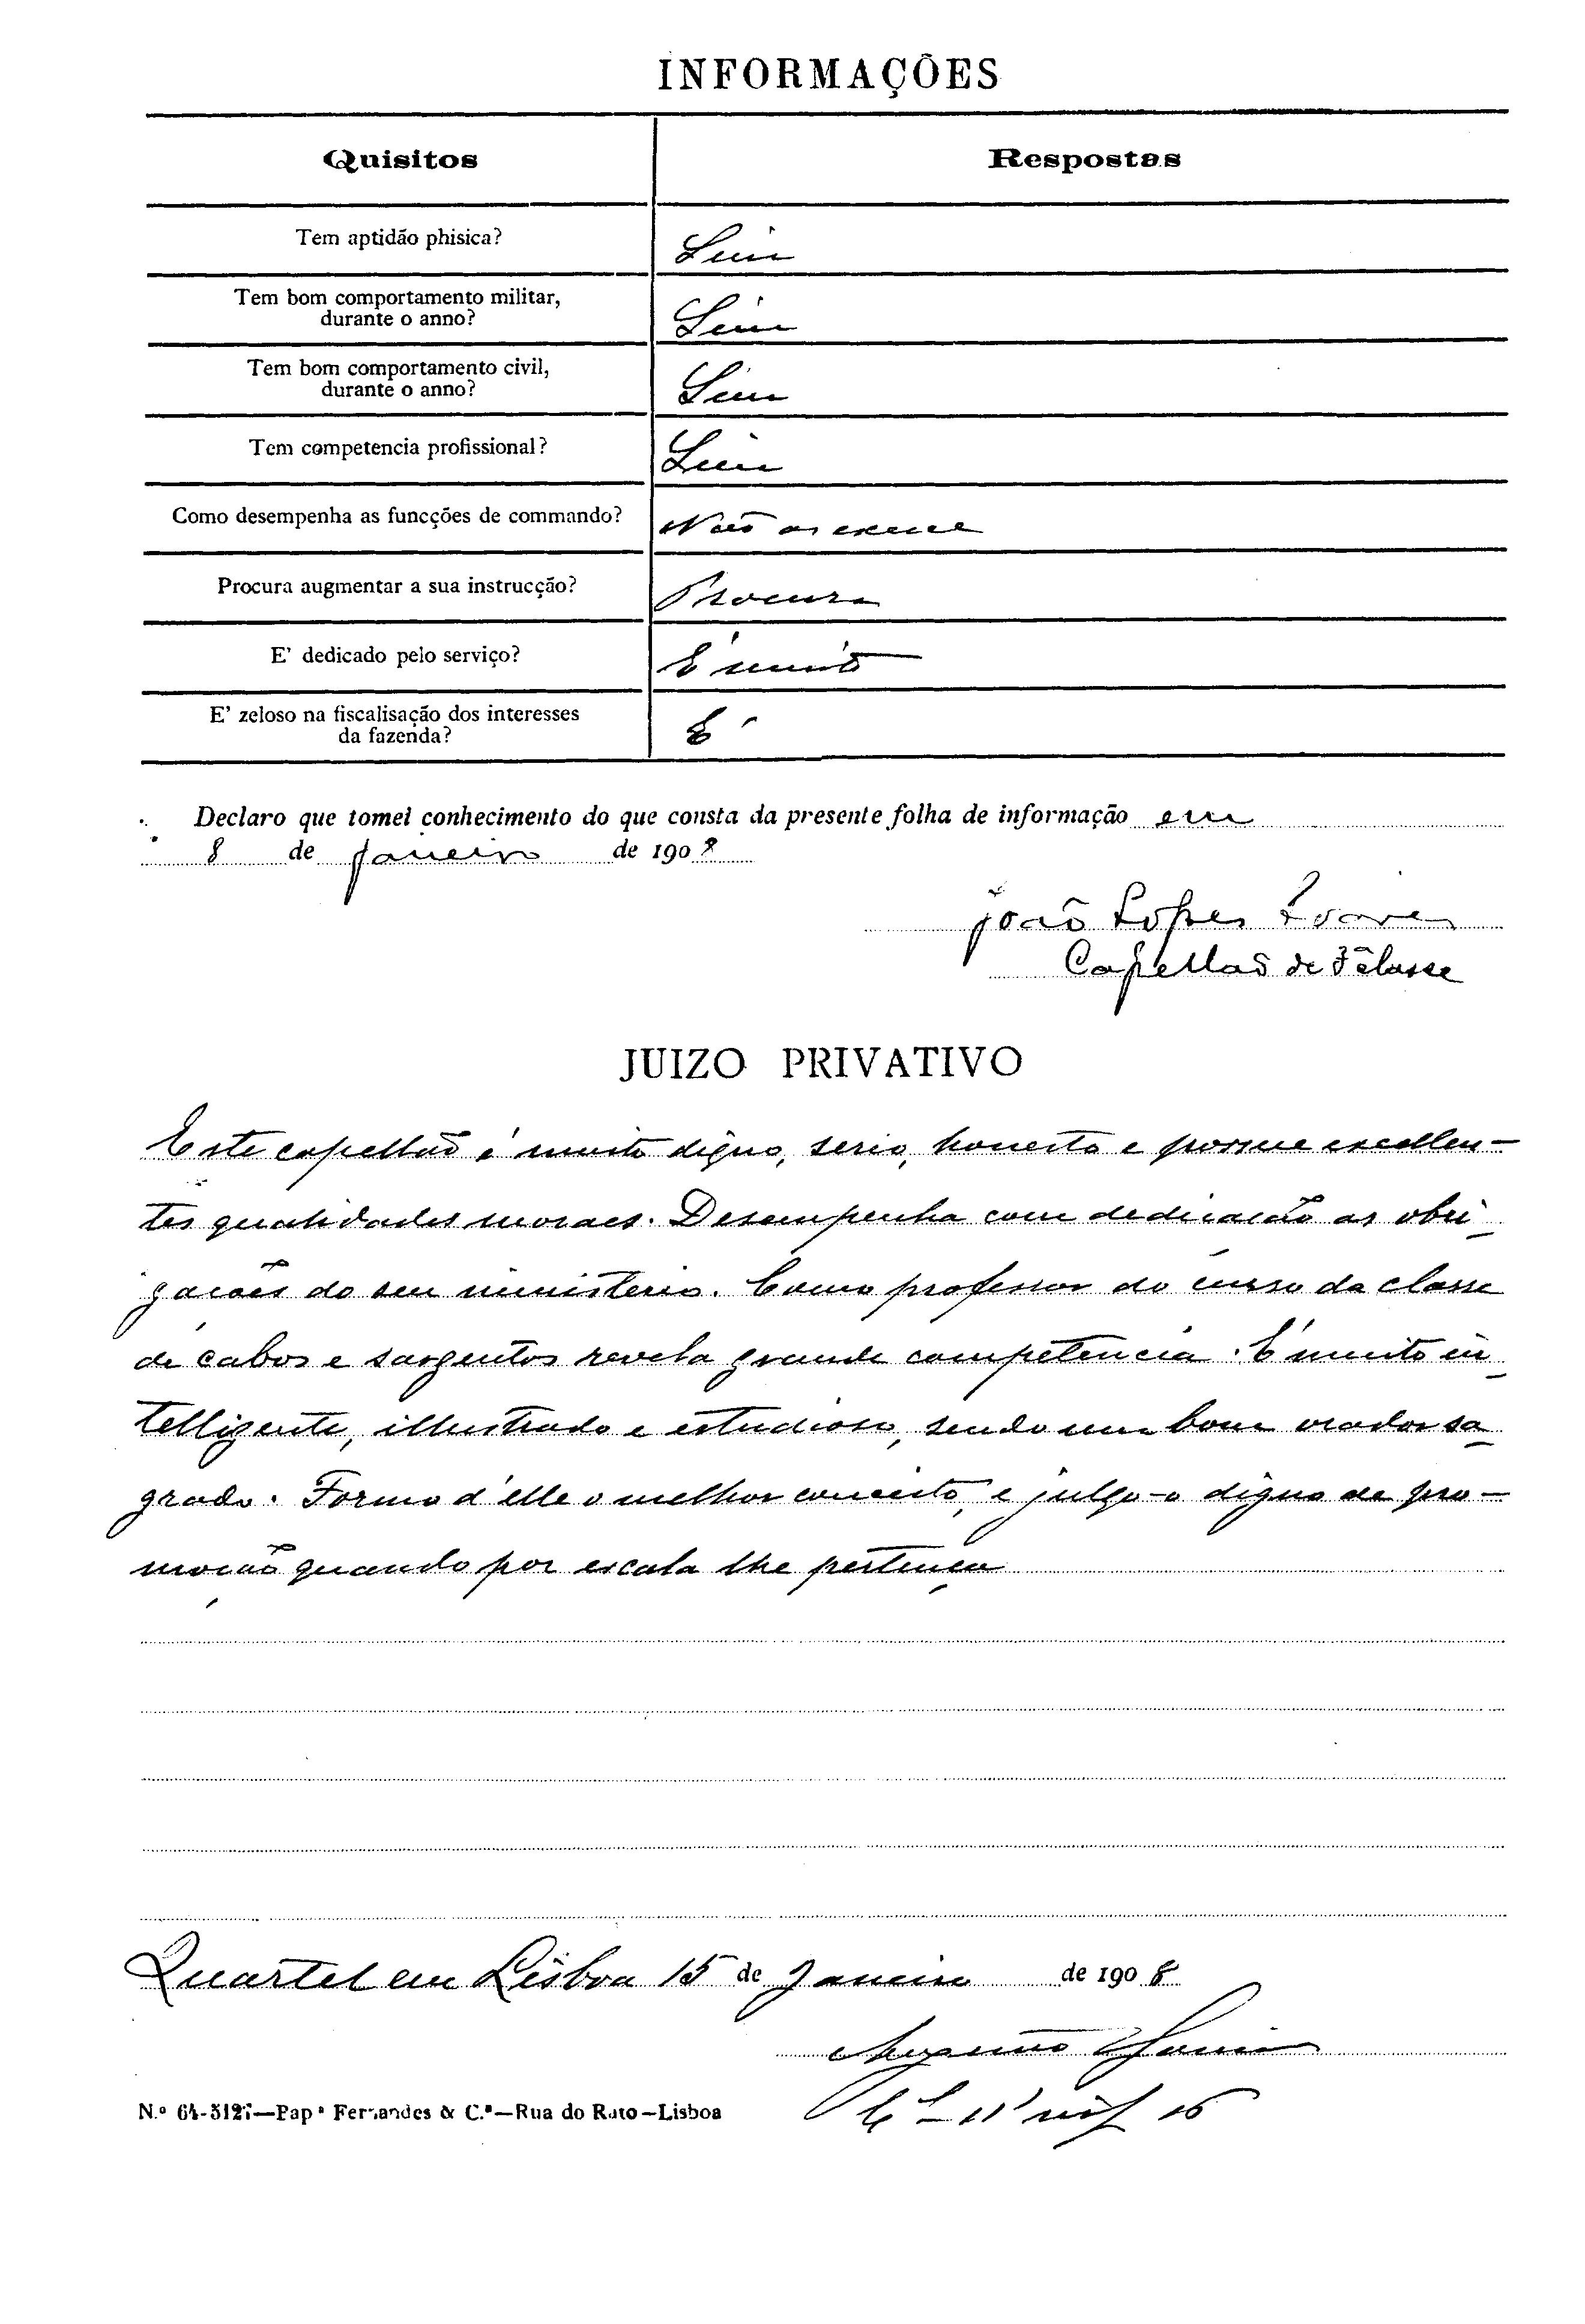 INFORMAÇÕES
Quisitos Respostas
Tem aptidão phisica? Sim
Tem bom comportamento militar,
durante o anno? Sim
Tem bom comportamento civil,
durante o anno? Sim
Tem competencia profissional? Sim
Como desempenha as funcções de commando? Não as exerce
Procura augmentar a sua instrucção? Procura
E' dedicado pelo serviço? É muito
E' zeloso na fiscalisação dos interesses
da fazenda? É
Declaro que tomei conhecimento do que consta da presente folha de informação em
8 de Janeiro de 1908
João Lopes Soares
Capellão de 3ª classe
JUIZO PRIVATIVO
Este capellão é muito digno, serio, honesto e possue excellen-
tes qualidades moraes. Desempenha com dedicação as obri-
gações do seu ministerio. Como professor do curso da classe
de cabos e sargentos revela grande competencia. É muito in-
telligente, illustrado e estudioso, sendo um bom orador sa-
grado. Formo d'elle o melhor conceito, e julgo-o digno de pro-
moção quando por escala lhe pertença
Quartel em Lisboa 15 de Janeiro de 1908
N.º 64-5127—Papª Fernandes & C.ª—Rua do Rato—Lisboa